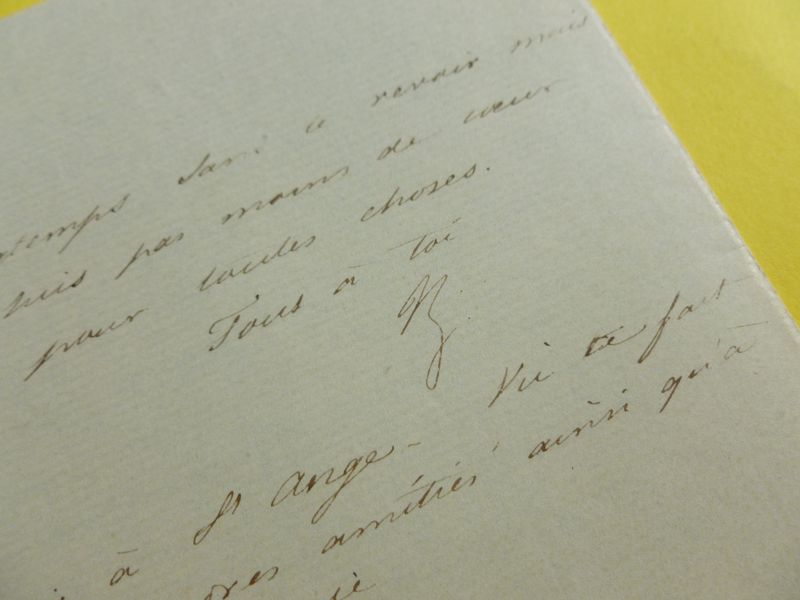 temps sans te revoir mais
suis pas moins de cœur
pour toutes choses.
Tous à toi
à St Ange - Vie te fait
amitiés ainsi qu'à